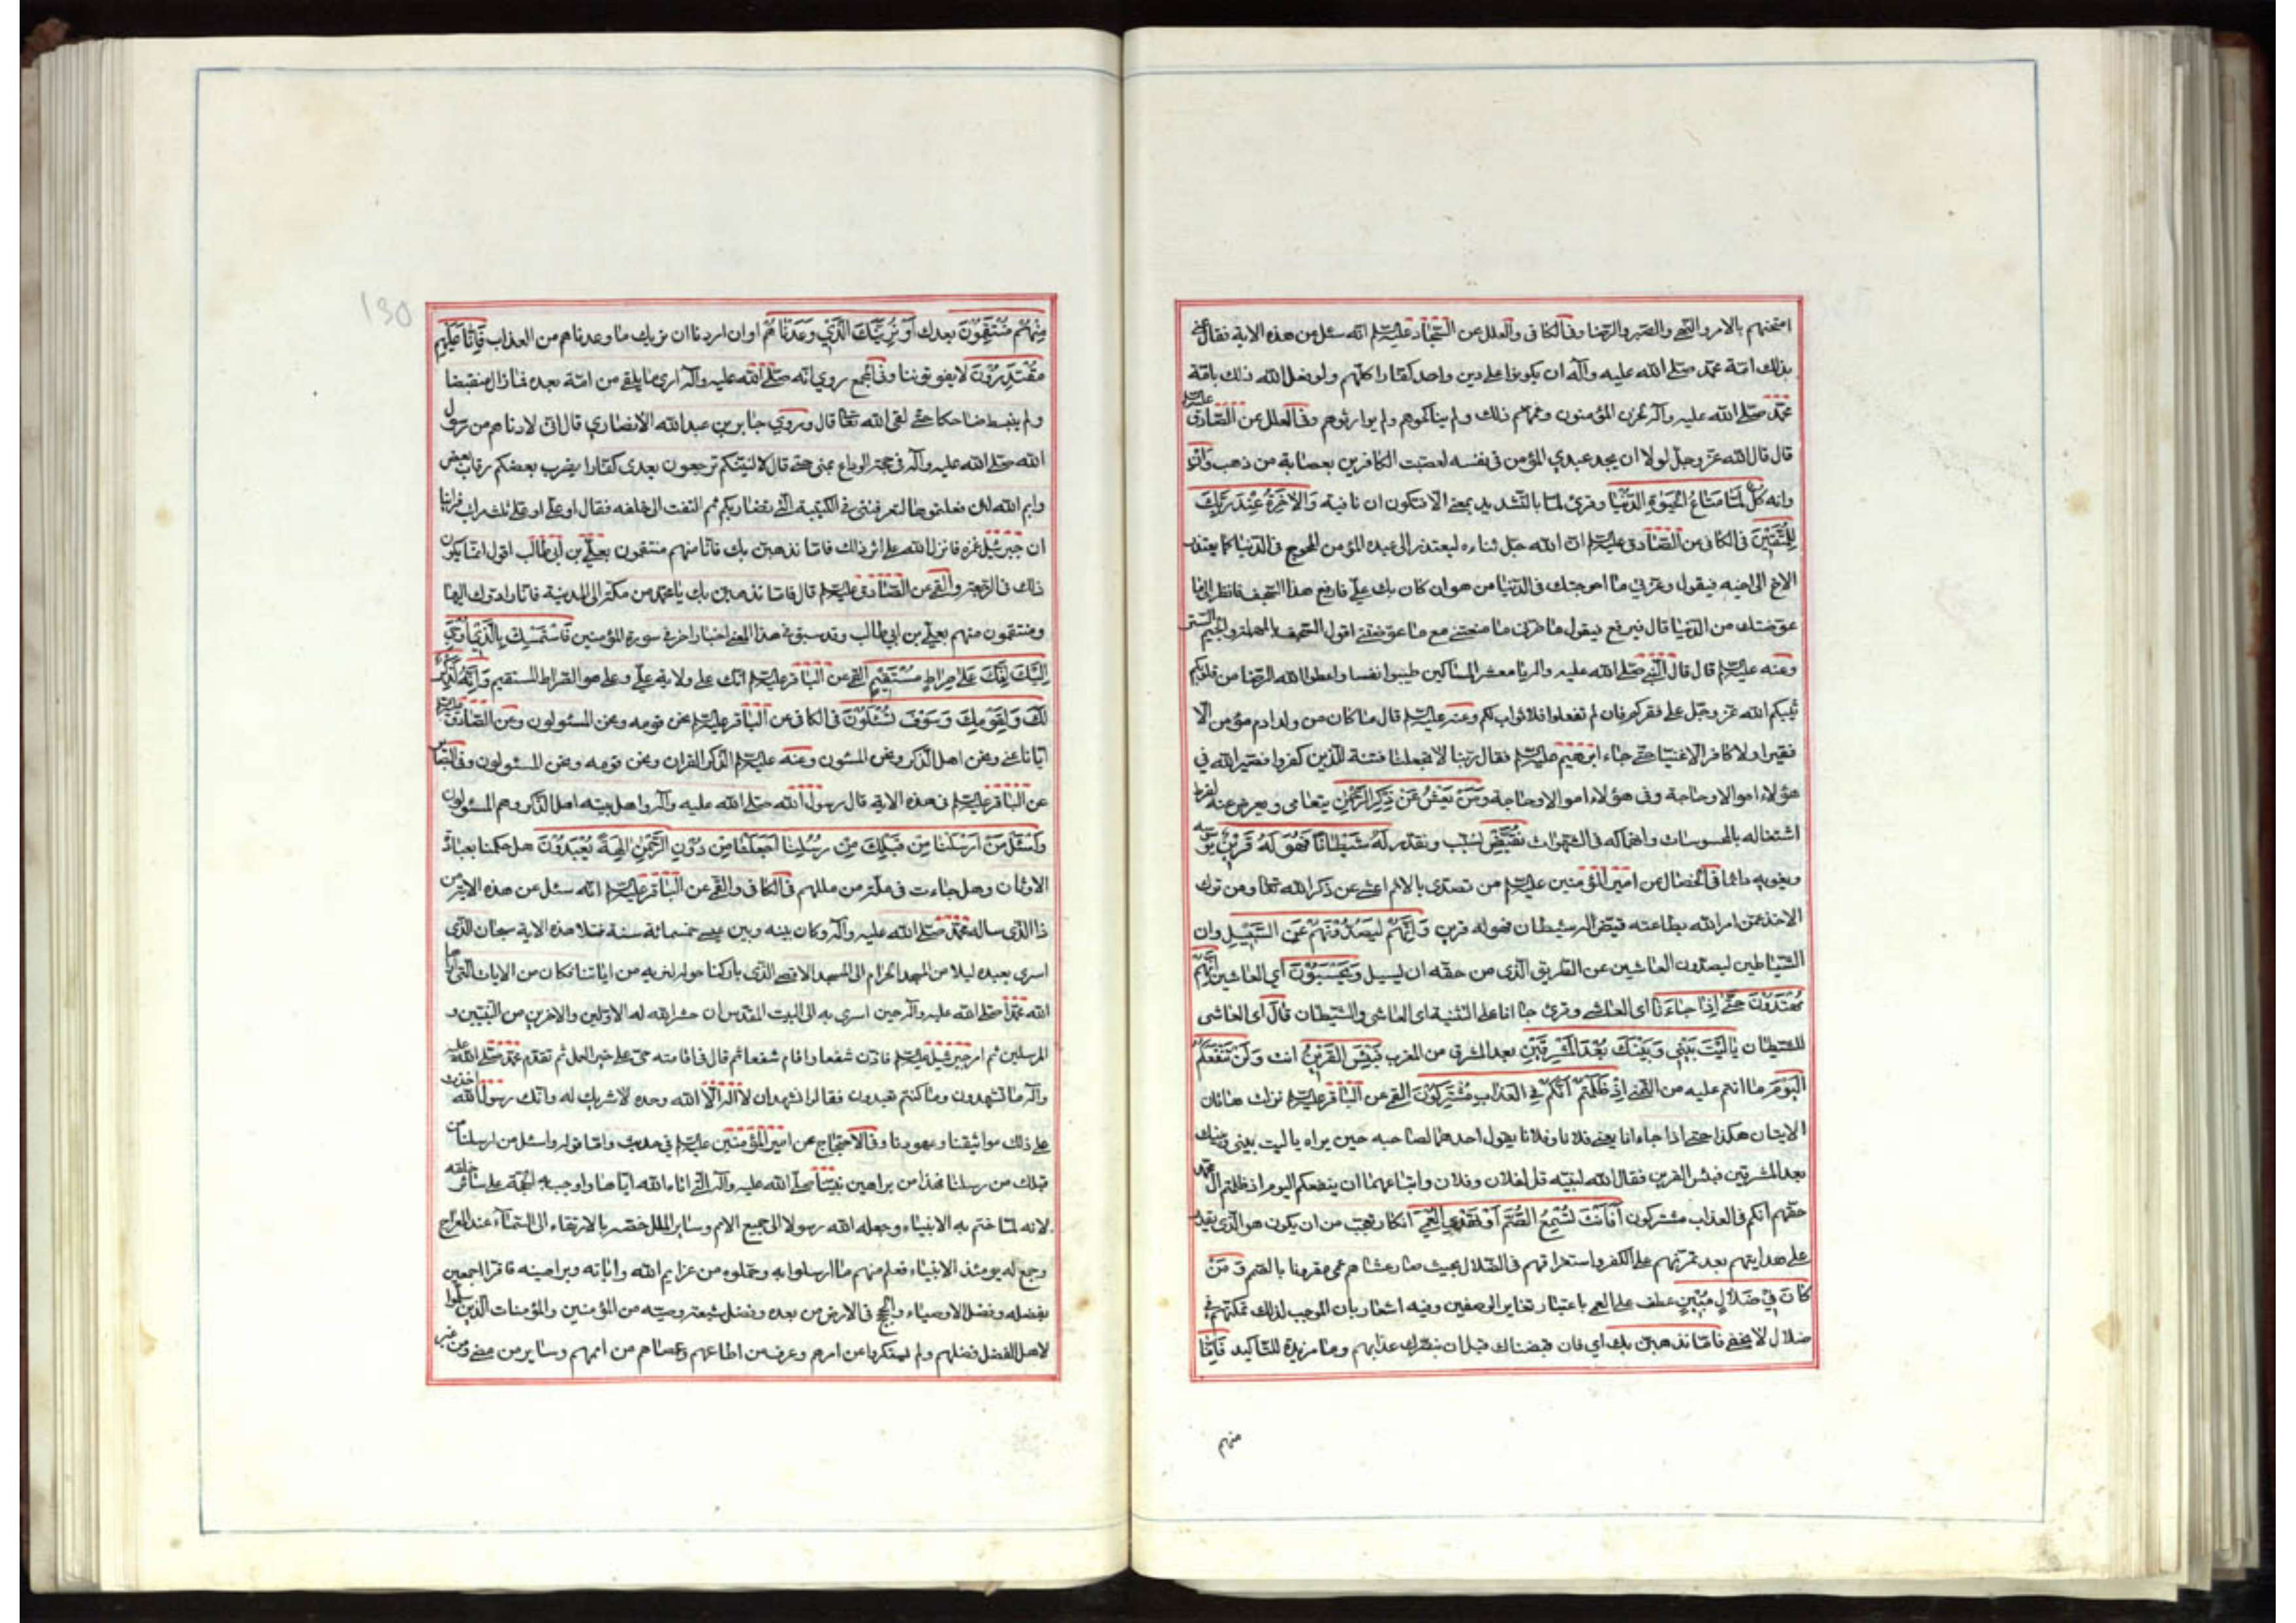 امتحنهم بالامر والنهي والصبر والرضا وفي الكافي والعلل عن السجاد عليه السلم انه سئل عن هذه الاية فقال عنى
بذلك امة محمد صلى الله عليه وآله ان يكونوا على دين واحد كفارا كلهم ولو فعل الله ذلك بامة
محمد صلى الله عليه وآله لحزن المؤمنون وغمهم ذلك ولم يناكحوهم ولم يوارثوهم وفي العلل عن الصادق عليه السلم
قال قال الله عز وجل لولا ان يجد عبدي المؤمن في نفسه لعصبت الكافرين بعصابة من ذهب
وَاِنْ كُلُّ لَمَّا مَتَاعُ الْحَيٰوةِ الدُّنْيَا وقرئ لما بالتشديد بمعنى الا فتكون ان نافية وَالْاٰخِرَةُ عِنْدَ رَبِّكَ
لِلْمُتَّقِيْنَ في الكافي عن الصادق عليه السلم ان الله جل ثناؤه ليعتذر الى عبده المؤمن المحوج في الدنيا كما يعتذر
الاخ الى اخيه فيقول وعزتي ما احوجتك في الدنيا من هوان كان بك علي فارفع هذا السجف فانظر الى ما
عوضتك من الدنيا قال فيرفع فيقول ما ضرني ما منعتني مع ما عوضتني اقول السجف بالمهملة والجيم الستر
وعنه عليه السلم قال قال النبي صلى الله عليه واله يا معشر المساكين طيبوا نفسا واعطوا الله الرضا من قلوبكم
يثيبكم الله عز وجل على فقركم فان لم تفعلوا فلا ثواب لكم وعنه عليه السلم قال ما كان من ولد ادم مؤمن الا
فقيرا ولا كافر الا غنيا حتى جاء ابرهيم عليه السلم فقال ربنا لا تجعلنا فتنة للذين كفروا فصير الله في
هؤلاء اموالا وحاجة وفي هؤلاء اموالا وحاجة وَمَنْ يَعْشُ عَنْ ذِكْرِ الرَّحْمٰنِ يتعامى ويعرض عنه لفرط
اشتغاله بالمحسوسات وانهماكه في الشهوات نُقَيِّضْ نسبب ونقدر لَهُ شَيْطَانًا فَهُوَ لَهُ قَرِيْنٌ يوسوسه
ويغويه دائما في الخصال عن امير المؤمنين عليه السلم من تصدى بالاثم اعشى عن ذكر الله تعالى ومن ترك
الاخذ عمن امر الله بطاعته قيض له شيطان فهو له قرين وَاِنَّهُمْ لَيَصُدُّوْنَهُمْ عَنِ السَّبِيْلِ وان
الشياطين ليصدون العاشين عن الطريق الذي من حقه ان يسبل وَيَحْسَبُوْنَ اي العاشين اَنَّهُمْ
مُهْتَدُوْنَ حَتّٰى اِذَا جَاءَنَا اي العاشي وقرئ جاءانا على التثنية اي العاشي والشيطان قَالَ اي العاشي
للشيطان يَا لَيْتَ بَيْنِيْ وَبَيْنَكَ بُعْدَ الْمَشْرِقَيْنِ بعد المشرق من المغرب فَبِئْسَ الْقَرِيْنُ انت وَلَنْ يَنْفَعَكُمُ
الْيَوْمَ ما انتم عليه من التمني اِذْ ظَلَمْتُمْ اَنَّكُمْ فِي الْعَذَابِ مُشْتَرِكُوْنَ القمي عن الباقر عليه السلم نزلت هاتان
الايتان هكذا حتى اذا جاءانا يعني فلانا وفلانا يقول احدهما لصاحبه حين يراه يا ليت بيني وبينك
بعد المشرقين فبئس القرين فقال الله لنبيه قل لفلان وفلان واتباعهما لن ينفعكم اليوم اذ ظلمتم آل محمد
حقهم انكم في العذاب مشتركون اَفَاَنْتَ تُسْمِعُ الصُّمَّ اَوْ تَهْدِي الْعُمْيَ انكار تعجب من ان يكون هو الذي يقدر
على هدايتهم بعد تمرنهم على الكفر واستغراقهم في الضلال بحيث صار عشاهم عمى مقرونا بالصمم وَمَنْ
كَانَ فِيْ ضَلَالٍ مُبِيْنٍ عطف على العمي باعتبار تغاير الوصفين وفيه اشعار بان الموجب لذلك تمكنهم في
ضلال لا يخفى فَاِمَّا نَذْهَبَنَّ بِكَ اي فان قبضناك قبل ان نبصرك عذابهم وما مزيدة للتأكيد فَاِنَّا
منهم
130
مِنْهُمْ مُنْتَقِمُوْنَ بعدك اَوْ نُرِيَنَّكَ الَّذِيْ وَعَدْنَاهُمْ او ان اردنا ان نريك ما وعدناهم من العذاب فَاِنَّا عَلَيْهِمْ
مُقْتَدِرُوْنَ لا يفوتوننا وفي المجمع روي انه صلى الله عليه وآله اري ما يلقى من امته بعده فما زال منقبضا
ولم ينبسط ضاحكا حتى لقي الله تعالى قال وروي جابر بن عبد الله الانصاري قال اني لادناهم من رسول
الله صلى الله عليه وآله في حجة الوداع بمنى حتى قال لا الفينكم ترجعون بعدي كفارا يضرب بعضكم رقاب بعض
وايم الله لئن فعلتموها لتعرفنني في الكتيبة التي تضاربكم ثم التفت الى خلفه فقال او علي او علي ثلث مرات فراينا
ان جبرئيل غمزه فانزل الله على اثر ذلك فاما نذهبن بك فانا منهم منتقمون بعلي بن ابي طالب اقول انما يكون
ذلك في الرجعة والقمي عن الصادق عليه السلم قال فاما نذهبن بك يا محمد من مكة الى المدينة فانا رادوك اليها
ومنتقمون منهم بعلي بن ابي طالب وقد سبق في هذا المعنى اخبار اخر في سورة المؤمنين فَاسْتَمْسِكْ بِالَّذِيْ اُوْحِيَ
اِلَيْكَ اِنَّكَ عَلٰى صِرَاطٍ مُسْتَقِيْمٍ القمي عن الباقر عليه السلم انك على ولاية علي وعلي هو الصراط المستقيم وَاِنَّهُ لَذِكْرٌ
لَكَ وَلِقَوْمِكَ وَسَوْفَ تُسْئَلُوْنَ في الكافي عن الباقر عليه السلم نحن قومه ونحن المسئولون وعن الصادق عليه السلم
ايانا عنى ونحن اهل الذكر ونحن المسئولون وعنه عليه السلم الذكر القران ونحن قومه ونحن المسئولون وفي البصائر
عن الباقر عليه السلم في هذه الاية قال رسول الله صلى الله عليه وآله واهل بيته اهل الذكر وهم المسئولون
وَاسْئَلْ مَنْ اَرْسَلْنَا مِنْ قَبْلِكَ مِنْ رُسُلِنَا اَجَعَلْنَا مِنْ دُوْنِ الرَّحْمٰنِ اٰلِهَةً يُعْبَدُوْنَ هل حكمنا بعبادة
الاوثان وهل جاءت في ملة من مللهم في الكافي والقمي عن الباقر عليه السلم انه سئل عن هذه الاية من
ذا الذي ساله محمد صلى الله عليه وآله وكان بينه وبين عيسى خمسمائة سنة فتلا هذه الاية سبحان الذي
اسرى بعبده ليلا من المسجد الحرام الى المسجد الاقصى الذي باركنا حوله لنريه من اياتنا فكان من الايات التي اراها
الله محمدا صلى الله عليه وآله حين اسرى به الى البيت المقدس ان حشر الله له الاولين والاخرين من النبيين و
المرسلين ثم امر جبرئيل عليه السلم فاذن شفعا واقام شفعا ثم قال في اقامته حي على خير العمل ثم تقدم محمد صلى الله عليه
وآله ما تشهدون وما كنتم تعبدون فقالوا نشهد ان لا اله الا الله وحده لا شريك له وانك رسول الله اخذت
على ذلك مواثيقنا وعهودنا وفي الاحتجاج عن امير المؤمنين عليه السلم في حديث واما قوله واسئل من ارسلنا من
قبلك من رسلنا فهذا من براهين نبينا صلى الله عليه وآله التي اتاه الله اياها واوجب به الحجة على سائر خلقه
لانه لما ختم به الانبياء وجعله الله رسولا الى جميع الامم وساير الملل خصه بالارتقاء الى السماء عند المعراج
وجمع له يومئذ الانبياء فعلم منهم ما ارسلوا به وحملوه من عزايم الله واياته وبراهينه فاقروا اجمعين
بفضله وفضل الاوصياء والحجج في الارض من بعده وفضل شيعة وصيه من المؤمنين والمؤمنات الذين سلموا
لاهل الفضل فضلهم ولم يستكبروا عن امرهم وعرف من اطاعهم وعصاهم من اممهم وساير من مضى ومن غبر